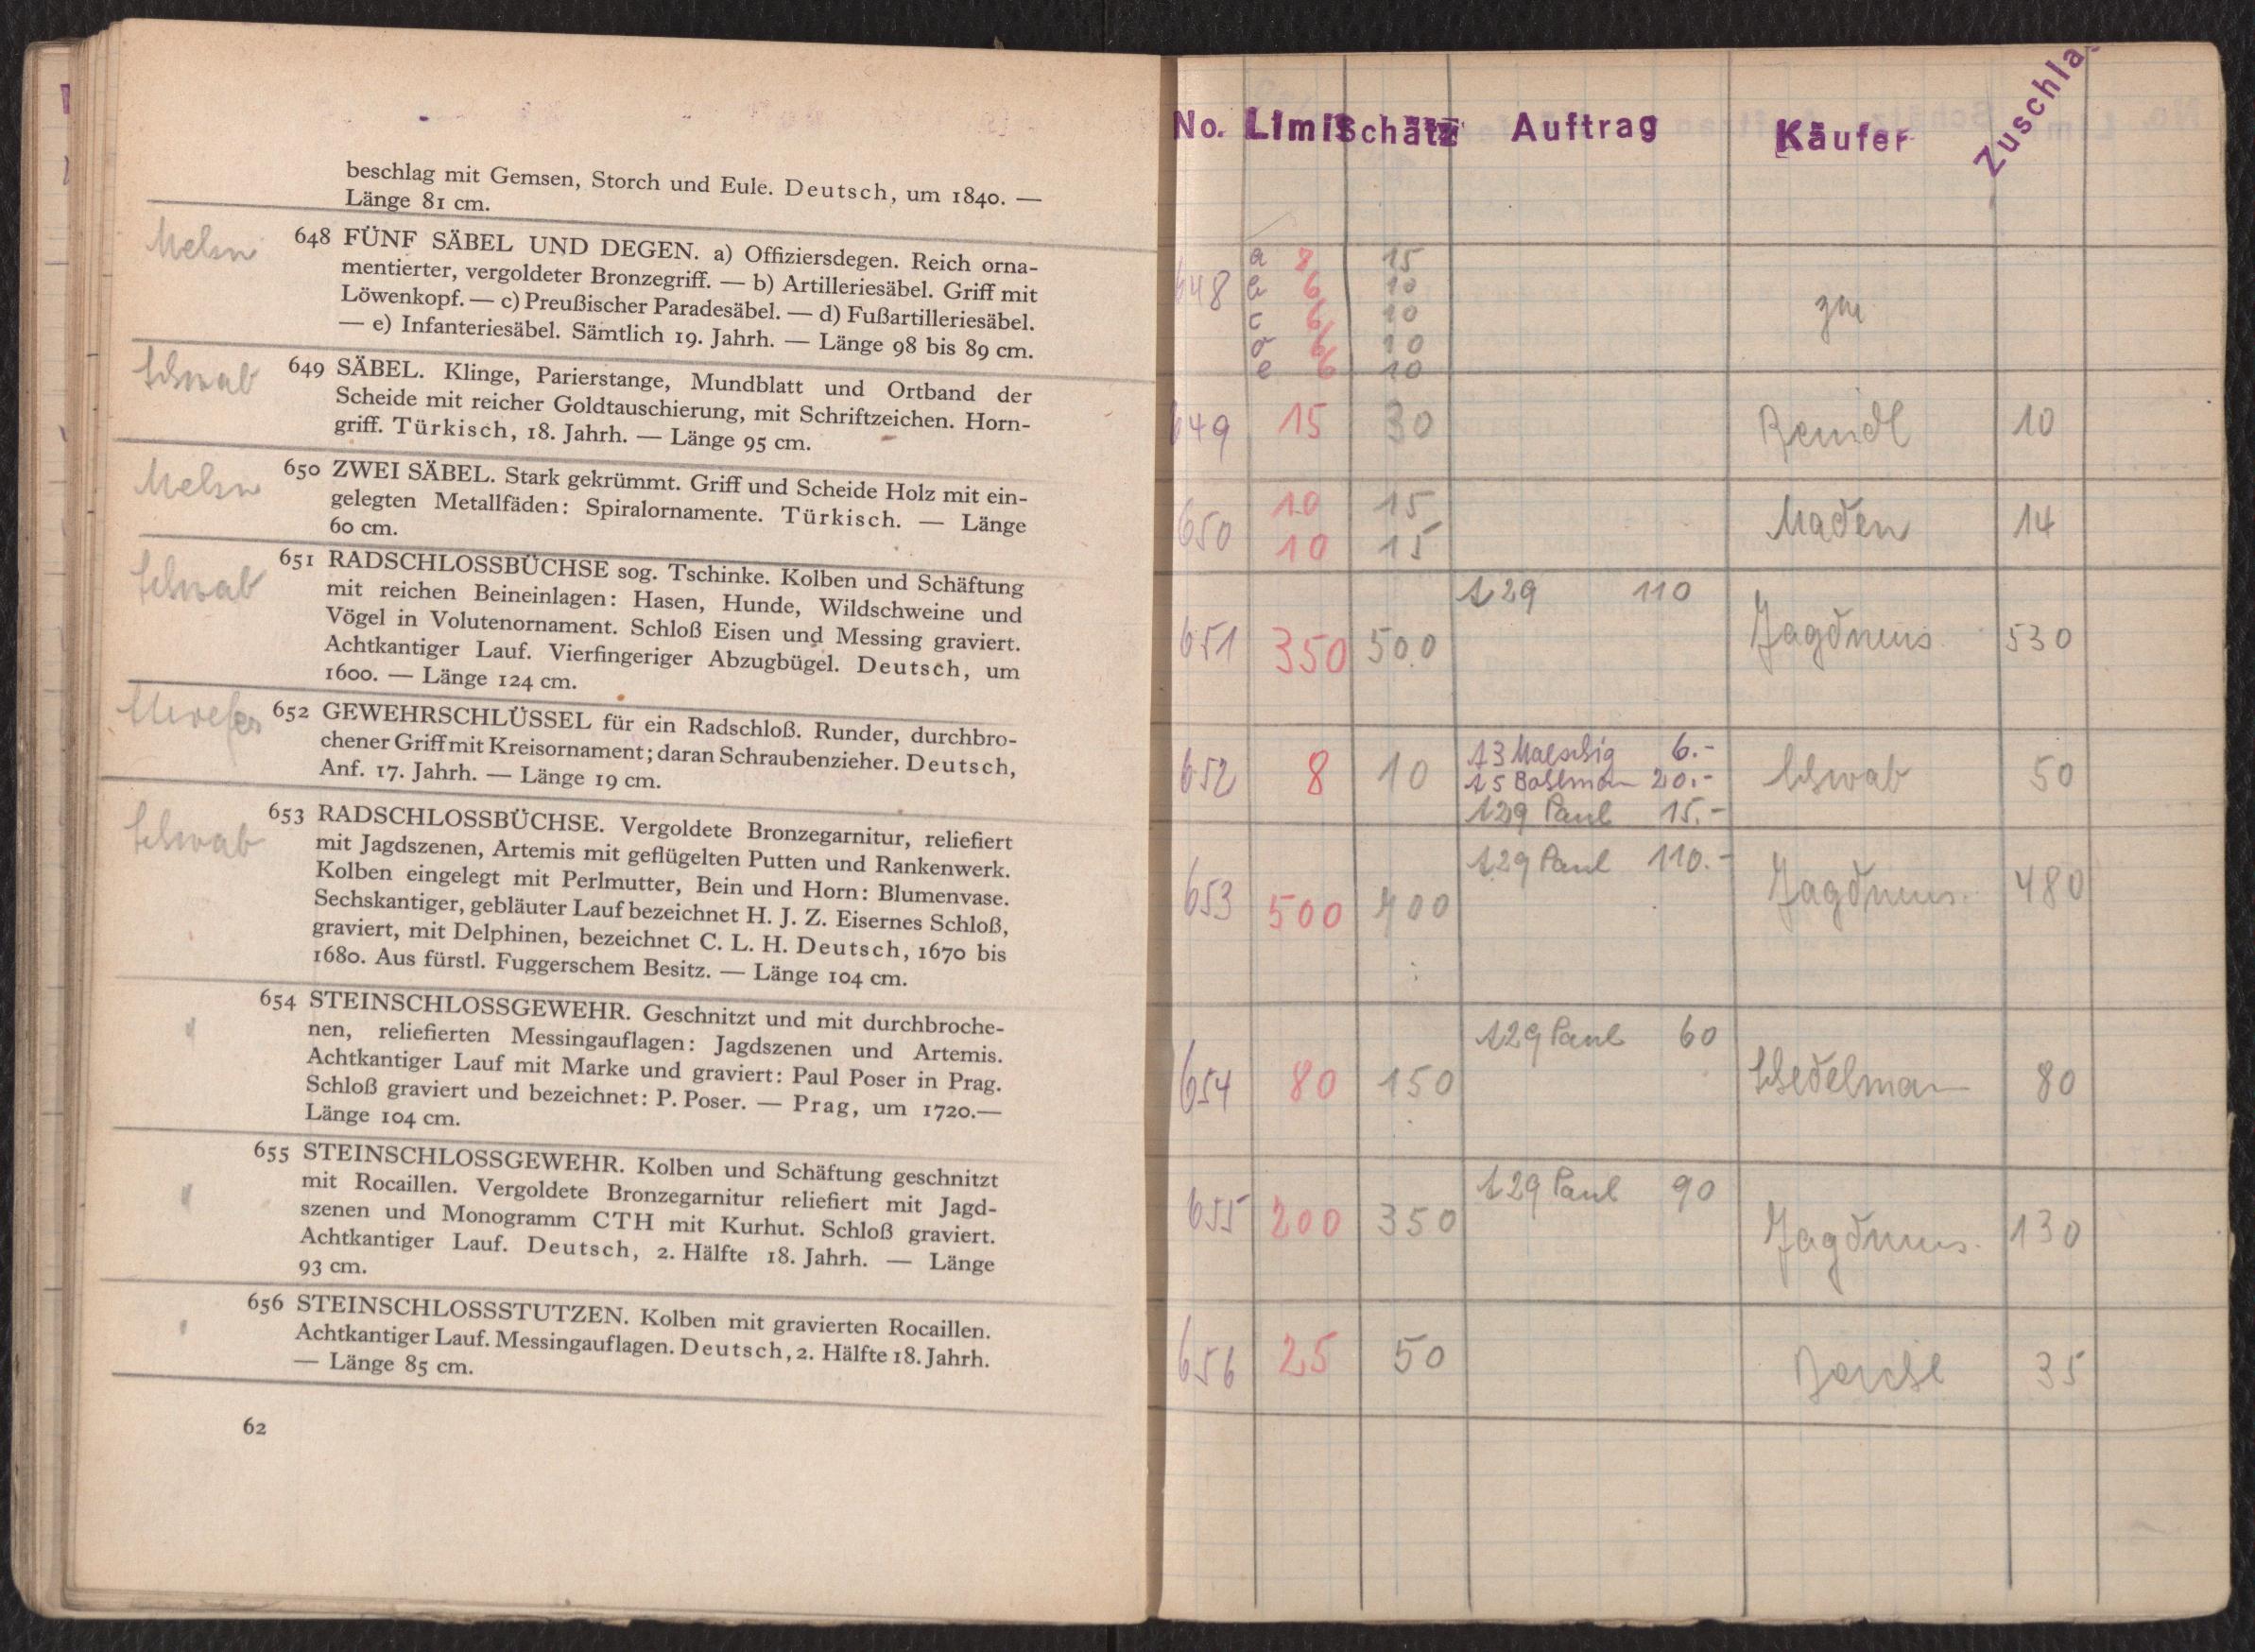 beschlag mit Gemsen, Storch und Eule. Deutsch, um 1840. —
Länge 81 cm.
648 FÜNF SÄBEL UND DEGEN. a) Offiziersdegen. Reich orna-
mentierter, vergoldeter Bronzegriff. — b) Artilleriesäbel. Griff mit
Löwenkopf. — c) Preußischer Paradesäbel. — d) Fußartilleriesäbel.
— e) Infanteriesäbel. Sämtlich 19. Jahrh. — Länge 98 bis 89 cm.
Schwab
649 SÄBEL. Klinge, Parierstange, Mundblatt und Ortband der
Scheide mit reicher Goldtauschierung, mit Schriftzeichen. Horn-
griff. Türkisch, 18. Jahrh. — Länge 95 cm.
650 ZWEI SÄBEL. Stark gekrümmt. Griff und Scheide Holz mit ein-
gelegten Metallfäden: Spiralornamente. Türkisch. — Länge
60 cm.
Schwab
651 RADSCHLOSSBÜCHSE sog. Tschinke. Kolben und Schäftung
mit reichen Beineinlagen: Hasen, Hunde, Wildschweine und
Vögel in Volutenornament. Schloß Eisen und Messing graviert.
Achtkantiger Lauf. Vierfingeriger Abzugbügel. Deutsch, um
1600. — Länge 124 cm.
652 GEWEHRSCHLÜSSEL für ein Radschloß. Runder, durchbro-
chener Griff mit Kreisornament; daran Schraubenzieher. Deutsch,
Anf. 17. Jahrh. — Länge 19 cm.
Schwab
653 RADSCHLOSSBÜCHSE. Vergoldete Bronzegarnitur, reliefiert
mit Jagdszenen, Artemis mit geflügelten Putten und Rankenwerk.
Kolben eingelegt mit Perlmutter, Bein und Horn: Blumenvase.
Sechskantiger, gebläuter Lauf bezeichnet H. J. Z. Eisernes Schloß,
graviert, mit Delphinen, bezeichnet C. L. H. Deutsch, 1670 bis
1680. Aus fürstl. Fuggerschem Besitz. — Länge 104 cm.
"
654 STEINSCHLOSSGEWEHR. Geschnitzt und mit durchbroche-
nen, reliefierten Messingauflagen: Jagdszenen und Artemis.
Achtkantiger Lauf mit Marke und graviert: Paul Poser in Prag.
Schloß graviert und bezeichnet: P. Poser. — Prag, um 1720.—
Länge 104 cm.
"
655 STEINSCHLOSSGEWEHR. Kolben und Schäftung geschnitzt
mit Rocaillen. Vergoldete Bronzegarnitur reliefiert mit Jagd-
szenen und Monogramm CTH mit Kurhut. Schloß graviert.
Achtkantiger Lauf. Deutsch, 2. Hälfte 18. Jahrh. — Länge
93 cm.
"
656 STEINSCHLOSSSTUTZEN. Kolben mit gravierten Rocaillen.
Achtkantiger Lauf. Messingauflagen. Deutsch, 2. Hälfte 18. Jahrh.
— Länge 85 cm.
62
No. Limit Schätz Auftrag Käufer Zuschla
648 a 8 15
b 6 10
c 6 10
d 6 10
e 6 10
649 15 30 Reindl 10
650 10 15 Maden 14
10 15
129 110
651 350 500 Jagdmus 530
13 6.-
652 8 10 15 20.- Schwab 50
129 Paul 15.-
129 Paul 110.-
653 500 700 Jagdmus. 480
129 Paul 60
654 80 150 Schedelman 80
129 Paul 90
655 200 350 Jagdmus. 130
656 25 50 35